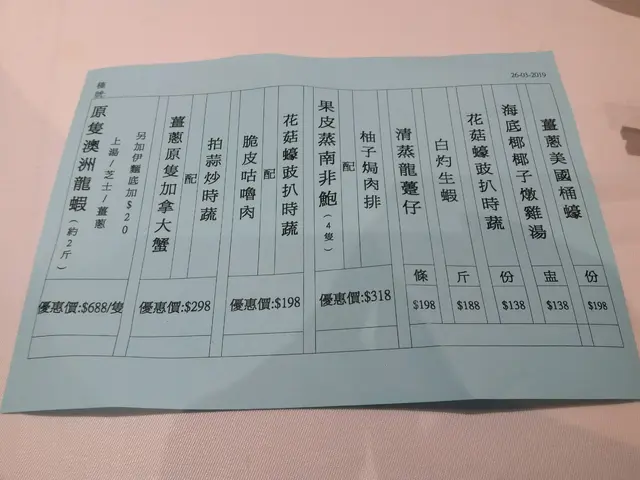 26-03-2019
薑蔥美國桶蠔
份
$198
海底椰椰子燉雞湯
盅
$138
花菇蠔豉扒時蔬
份
$138
白灼生蝦
斤
$188
清蒸龍躉仔
條
$198
柚子焗肉排
配
果皮蒸南非鮑(4隻)
優惠價:$318
花菇蠔豉扒時蔬
配
脆皮咕嚕肉
優惠價:$198
拍蒜炒時蔬
配
薑蔥原隻加拿大蟹
優惠價:$298
另加伊麵底加$20
上湯/芝士/薑蔥
原隻澳洲龍蝦(約2斤)
優惠價:$688/隻